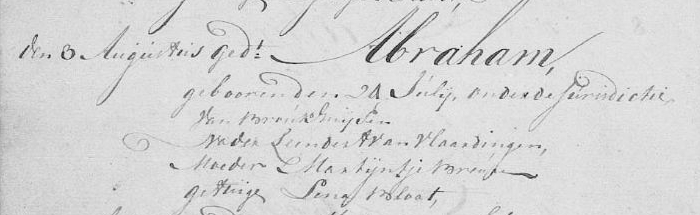 den 8 Augustus gedt: Abraham,
geboorenden 24 Julij, onder de Jurisdictie
van
Vader Leendert van Vlaardingen,
Moeder Martijntje
getuige Lena Bloot,